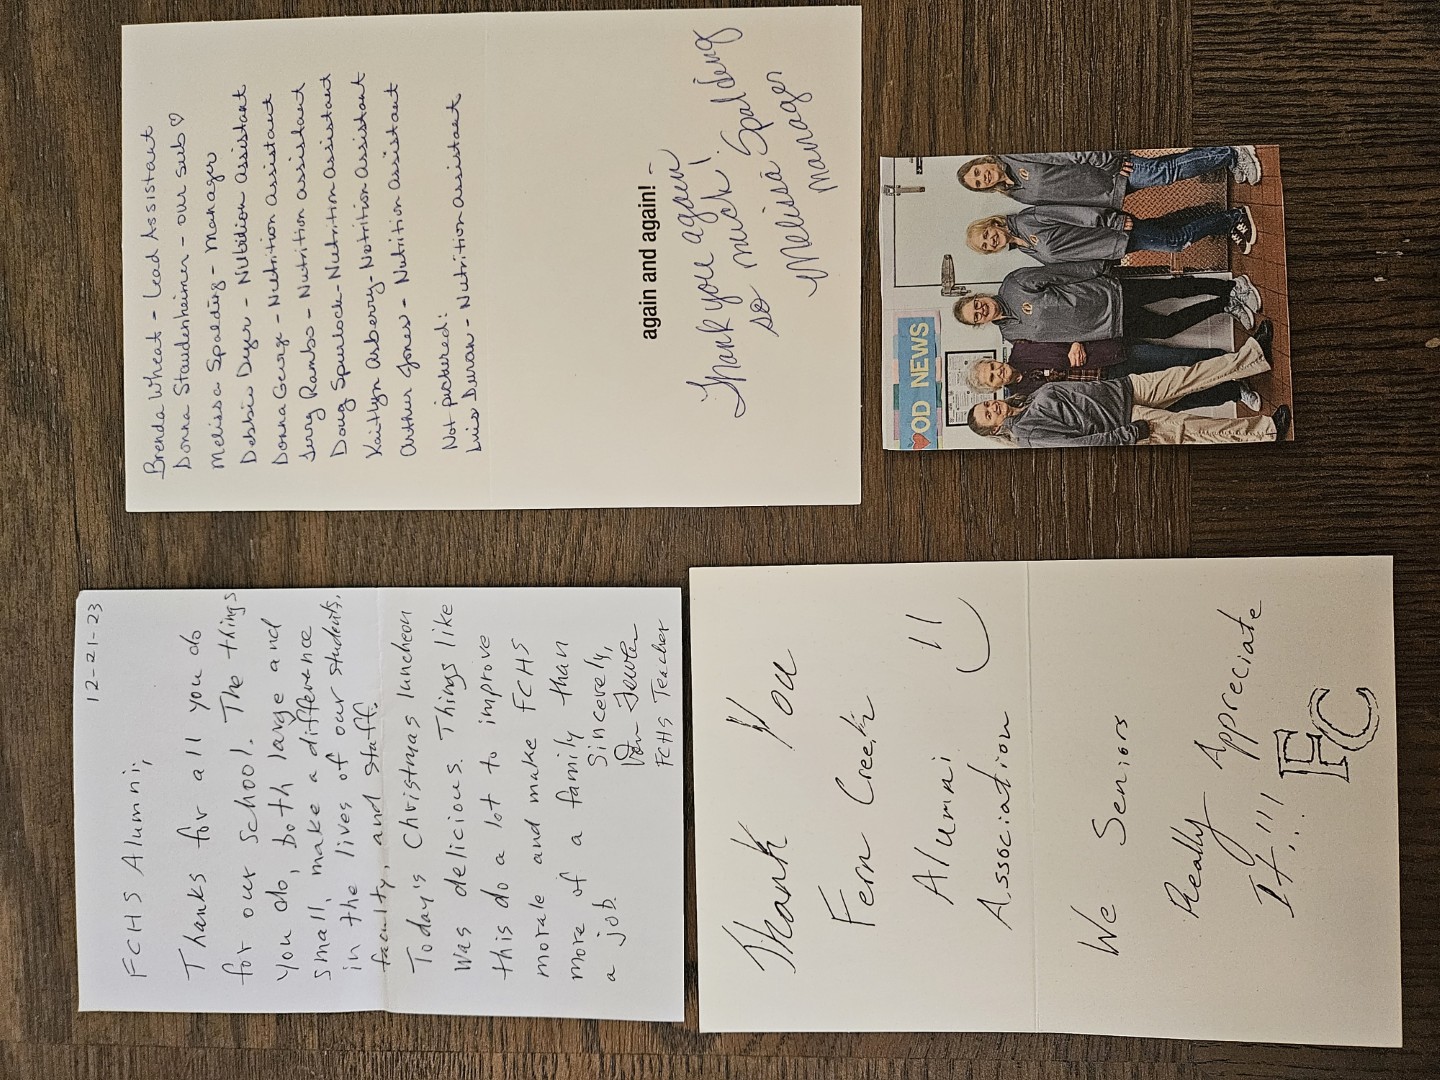 12-21-23
FCHS Alumni,
Thanks for all you do
for our school. The things
you do, both large and
small, make a difference
in the lives of our students,
faculty, and staff.
Today's Christmas luncheon
was delicious. Things like
this do a lot to improve
morale and make FCHS
more of a family than
a job.
Sincerely,
FCHS Teacher
Brenda Wheat - Lead Assistant
Donna Staudenheimer - our sub ♡
Melissa Spalding - Manager
Debbie Dyer - Nutrition Assistant
Donna - Nutrition assistant
Jerry Rambo - Nutrition assistant
Doug Spurlock - Nutrition assistant
Kaitlyn Arberry - Nutrition assistant
Arthur Jones - Nutrition assistant
Not pictured:
Luis Duran - Nutrition assistant
again and again! -
Thank you again
so much!
Melissa Spalding
Manager
Thank You
Fern Creek
Alumni
Association
We Seniors
Really Appreciate
It!!!
FC
OD NEWS